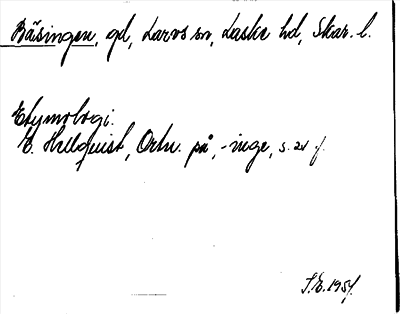 Bäsingen, gd, Larvs sn, Laske hd, Skar. l.
Etymologi:
E. Hellquist, Ortn. på, -inge, s. 21 f.
J.E. 1951.